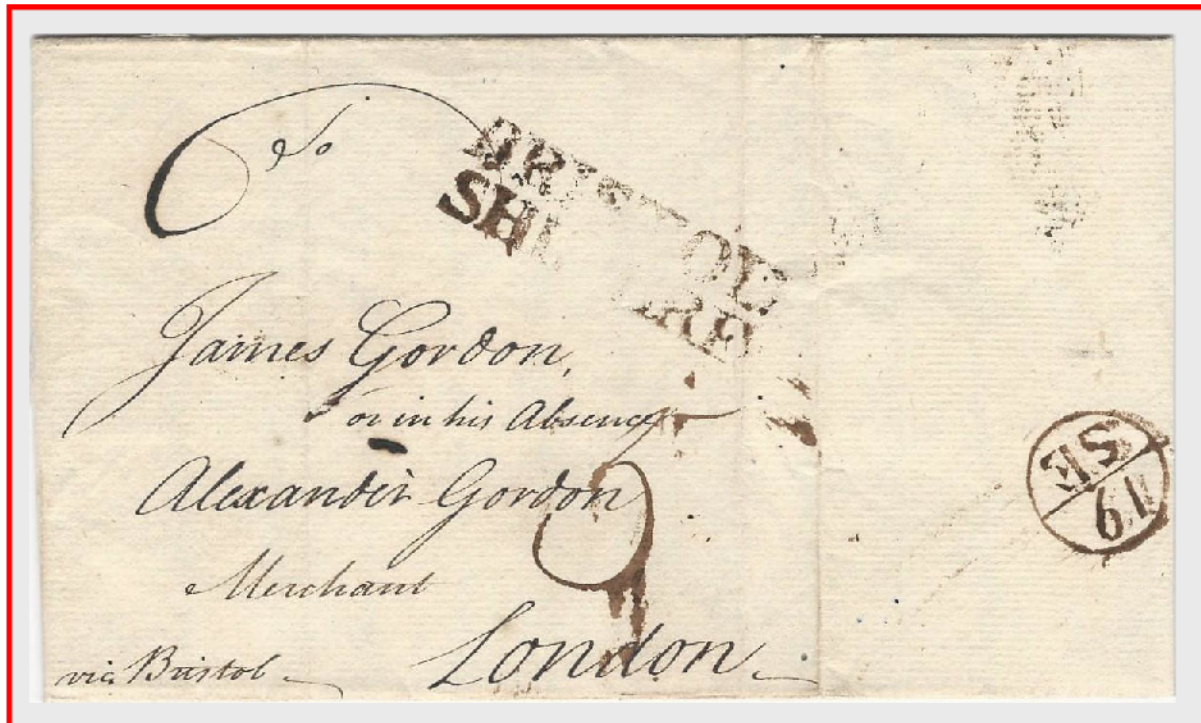 To
BRISTOL
SHIP LRE
James Gordon,
or in his Absence
Alexander Gordon
9
Merchant
London
via Bristol
SE
19